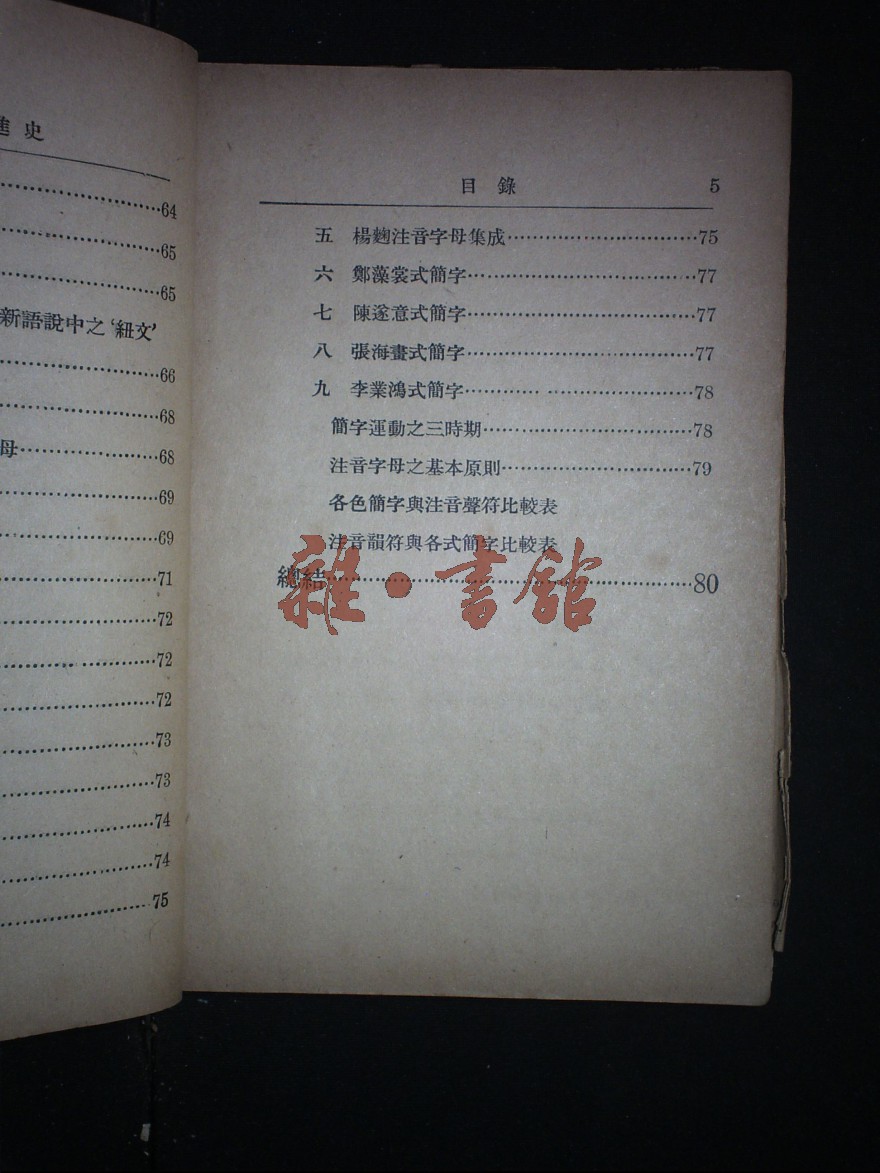 進史
64
65
65
新語說中之‘紐文’
66
68
母 68
69
69
71
72
72
72
73
73
74
74
75
目錄 5
五 楊麴注音字母集成 75
六 鄭藻裳式簡字 77
七 陳遂意式簡字 77
八 張海畫式簡字 77
九 李業鴻式簡字 78
簡字運動之三時期 78
注音字母之基本原則 79
各色簡字與注音聲符比較表
注音韻符與各式簡字比較表
總結 80
雜·書館